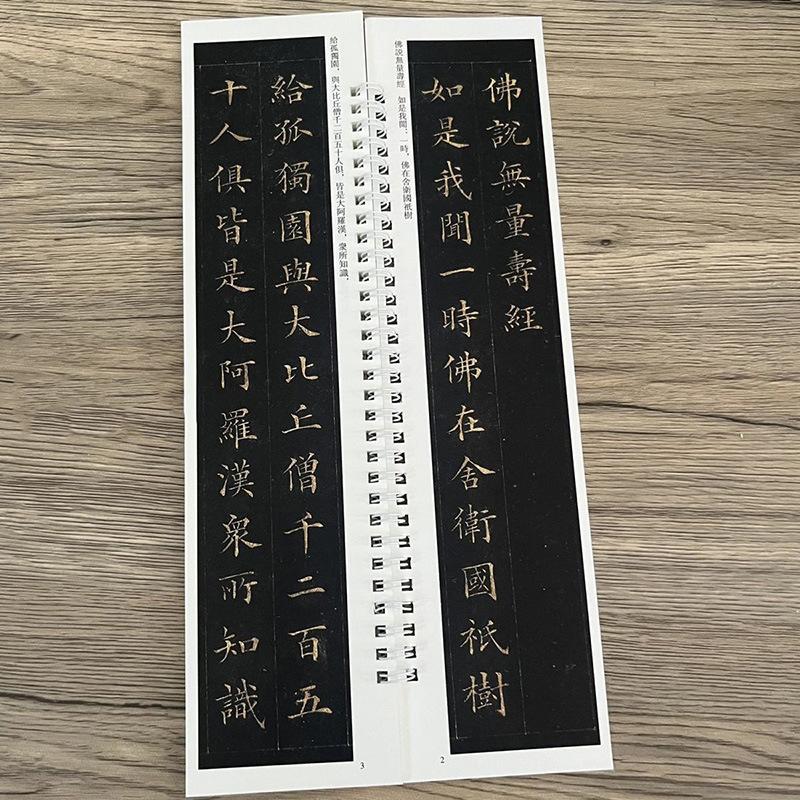 佛說無量壽經
如是我聞一時佛在舍衛國祇樹
佛說無量壽經 如是我聞:一時,佛在舍衛國祇樹
2
給孤獨園與大比丘僧千二百五
十人俱皆是大阿羅漢衆所知識
給孤獨園,與大比丘僧千二百五十人俱,皆是大阿羅漢,衆所知識,
3